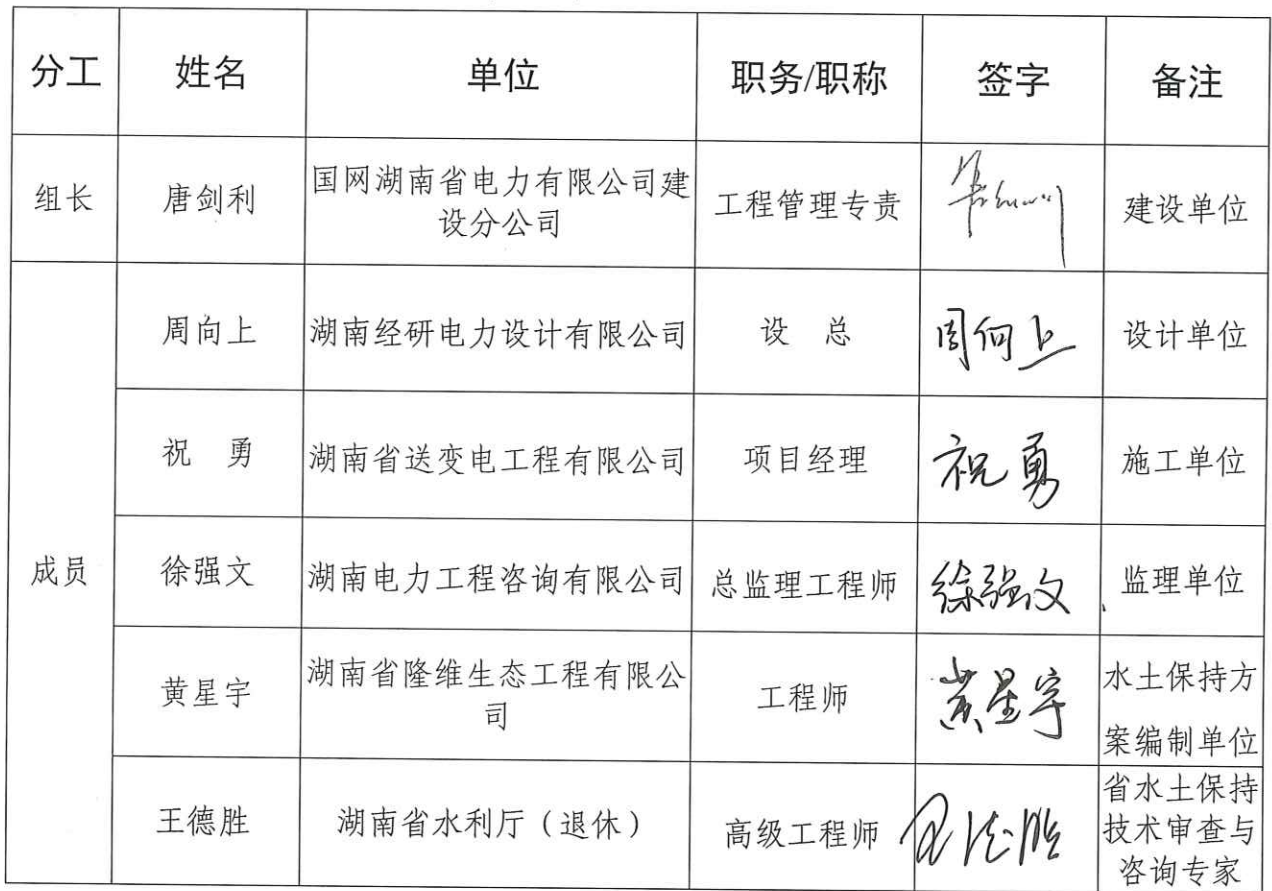 分工 姓名 单位 职务/职称 签字 备注
组长 唐剑利 国网湖南省电力有限公司建
设分公司 工程管理专责 建设单位
周向上 湖南经研电力设计有限公司 设 总 周向上 设计单位
祝 勇 湖南省送变电工程有限公司 项目经理 祝勇 施工单位
成员 徐强文 湖南电力工程咨询有限公司 总监理工程师 徐强文 监理单位
黄星宇 湖南省隆维生态工程有限公
司 工程师 黄星宇 水土保持方
案编制单位
王德胜 湖南省水利厅（退休） 高级工程师 王德胜 省水土保持
技术审查与
咨询专家